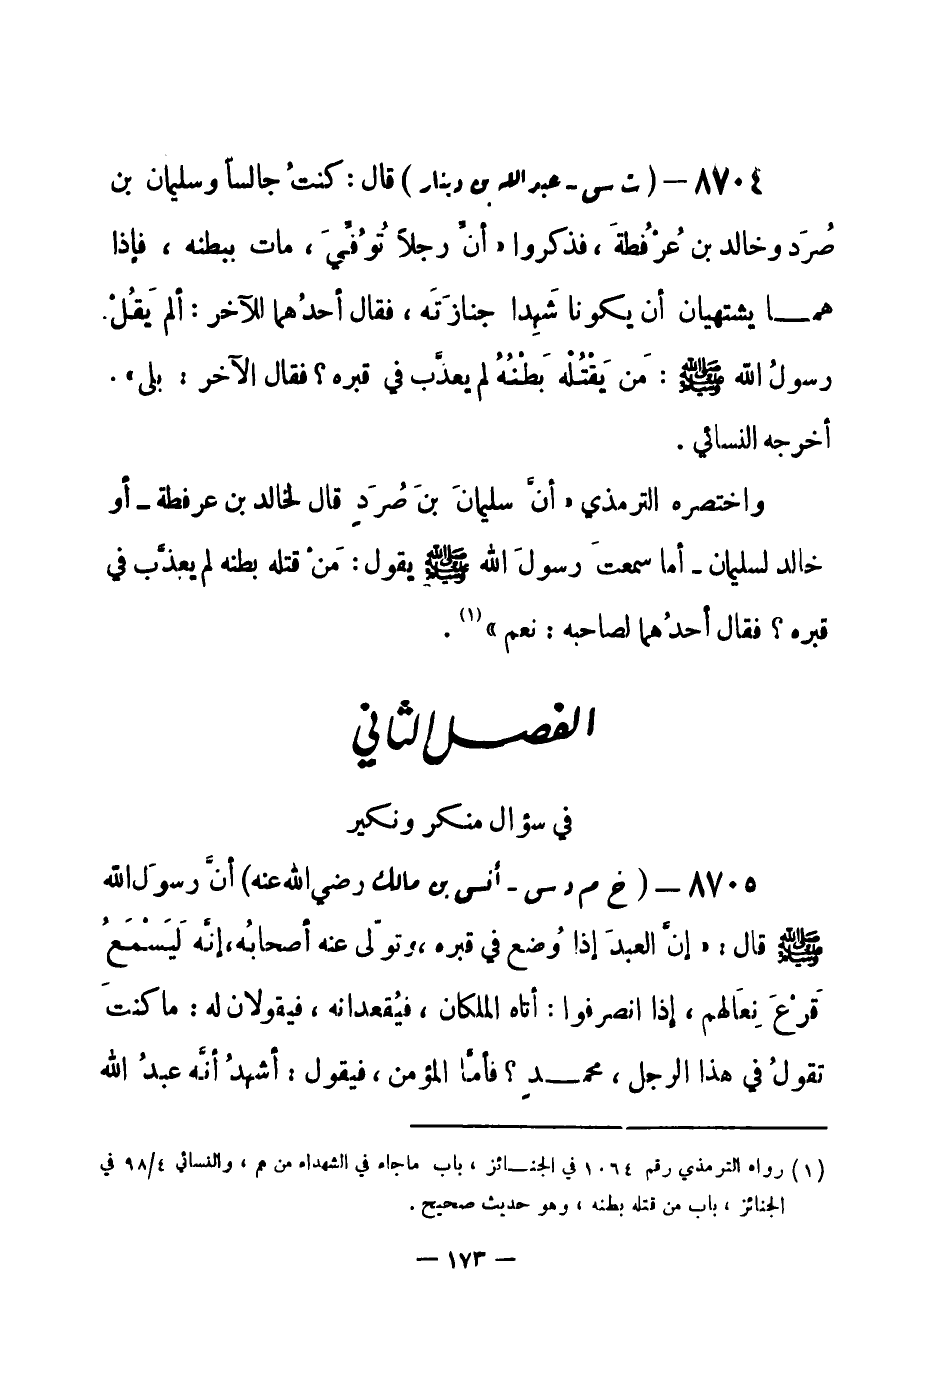 ٨٧٠٤ – ( ت س - عبد الله بن دينار ) قال : كنتُ جالساً وسليمان بن
صُرَد وخالد بن عُرْفُطةَ ، فذكروا « أنَّ رجلاً تُوُفِّيَ ، مات ببطنه ، فإذا
هما يشتهيان أن يكونا شَهِدا جنازَتَه ، فقال أحدُهما للآخر : ألم يَقُلْ
رسولُ الله ﷺ : مَن يَقْتُلْه بَطْنُهُ لم يعذَّب في قبره ؟ فقال الآخر : بلى» .
أخرجه النسائي .
واختصره الترمذي « أنَّ سليمانَ بنَ صُرَدٍ قال لخالد بن عرفطة – أو
خالد لسليمان – أما سمعتَ رسولَ الله ﷺ يقول : مَنْ قتله بطنه لم يعذَّب في
قبره ؟ فقال أحدُهما لصاحبه : نعم » (١) .
الفصل الثاني
في سؤال منكر ونكير
٨٧٠٥ – ( خ م د س - أنس بن مالك رضي الله عنه) أنَّ رسولَ الله
ﷺ قال : « إنَّ العبدَ إذا وُضع في قبره ، وتولّى عنه أصحابُه، إنَّه لَيَسْمَعُ
قَرْعَ نِعَالهم ، إذا انصرفوا : أتاه الملكان ، فيُقعدانه ، فيقولان له : ما كنتَ
تقولُ في هذا الرجل ، محمدٍ ؟ فأمَّا المؤمن ، فيقول : أشهدُ أنَّه عبدُ الله
(١) رواه الترمذي رقم ١٠٦٤ في الجنائز ، باب ماجاء في الشهداء من هم ، والنسائي ٩٨/٤ في
الجنائز ، باب من قتله بطنه ، وهو حديث صحيح .
– ١٧٣ –